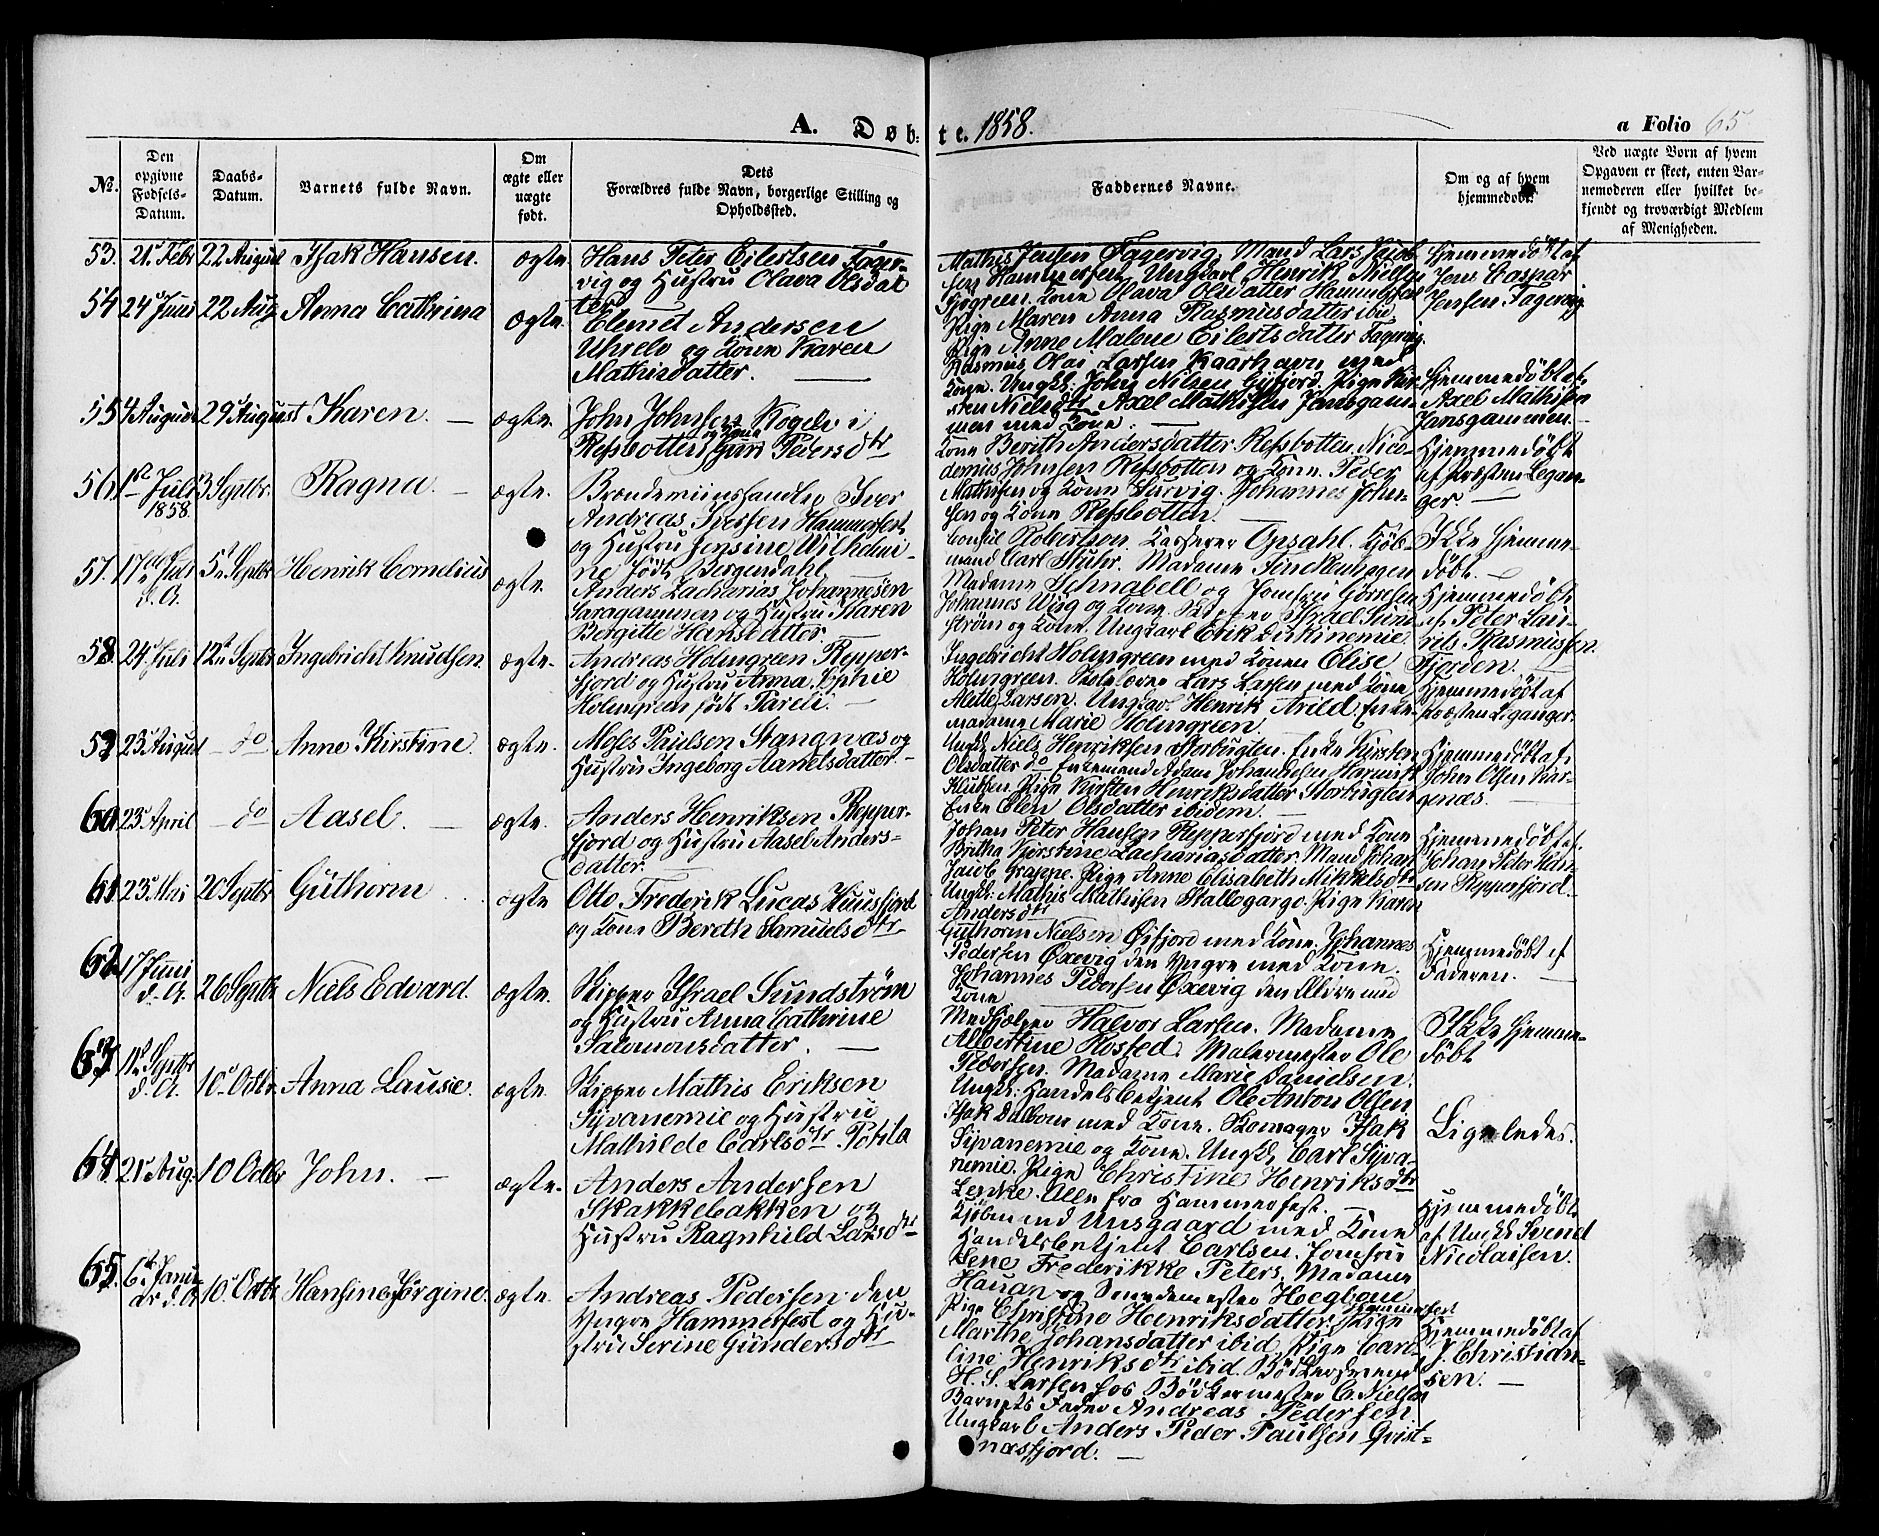 A. Døb: te. 1858. a Folio 65
No.
Den opgivne Fødsels-Datum.
Daabs-Datum.
Barnets fulde Navn.
Om ægte eller uægte født.
Dets Forældres fulde Navn, borgerlige Stilling og Opholdssted.
Faddernes Navne.
Om og af hvem hjemmedøbt.
Ved uægte Børn af hvem
Opgaven er skeet, enten Bar-
nemoderen eller hvilket be-
kjendt og troværdigt Medlem
af Menigheden.
53. 21. Febr 22 August Isak Hansen. ægte. Hans Peter Eilertsen Fager-
vig og Hustru Olava Olsdat
ter.
Mathis Jensen Fagervig. Mand Lars Jacob
sen Hammerfest. Ungkarl Henrik Nielsen
Kone Olava Olsdatter Hammerfest
Pige Maren Anna Rasmusdatter ibid.
Pige Anne Malene Eilertsdatter Fagervig.
Hjemmedöbt af
Jens Caspar
Jensen Fagervig
54 24 Juni 22 Aug Anna Cathrina ægte. Clemet Andersen
og Kone Karen
Mathisdatter.
Rasmus Olai Larsen Kaarhavn med
Kone. Ungk: John Nilsen Pige Kir-
sten Nielsdtr Axel Mathisen Jansgam-
men med Kone.
Hjemmedöbt af
Axel Mathisen
Jansgammen.
55 4 August 29 August Karen. ægte. John Johnsen Kogelv i
Refsbotten og Kone Guri Pedersdtr
Kone Berith Andersdatter Refsbotten. Nico-
demus Johnsen Refsbotten og Kone. Peder
Mathisen og Kone Johannes John-
sen og Kone Refsbotten.
Hjemmedöbt
af Presten Legan-
ger.
56. 1st Juli 1858. 3 Septbr. Ragna. ægte.
Andreas Iversen Hammerfest
og Hustru Jensine Wilhelmi-
ne født Bergendahl
Consul Robertson. Kasserer Opsahl. Kjöb-
mand Carl Stuhr. Madame Finckenhagen
Madame Schnabell og Jomfru Görrisen
Ikke hjemme-
döbt.
57. 17de Juli d. A. 5te Septbr Henrik Cornelius ægte. Anders Zacharias Johannesen
Saragammen og Hustru Maren
Bergitte Hansdatter.
Johannes Wiig og Kone. Skipper Israel Sund
ström og Kone. Ungkarl Erik Kirkinemie
Hjemmedöbt
af Peter Lau-
rits Rasmussen
Fjorden.
58. 24 Juli 12te Septbr Ingebricht Knudsen ægte. Andreas Holmgreen Repper-
fjord og Hustru Anna Sophie
Holmgreen født Pareli.
Ingebricht Holmgreen med Konen Elise
Holmgreen. Skolelærer Lars Larsen med Kone
Alette Larsen. Ungkarl Henrik Arild. Enke-
madame Marie Holmgreen.
Hjemmedöbt af
Præsten Leganger.
59 23 August do Anne Kirstine. ægte. Moses Paulsen Stangnæs og
Hustru Ingeborg Aanelsdatter.
Ungk Niels Henriksen Storbugten. Enke Kirsten
Olsdatter do Enkemand Adam Johannesen Hammerf.
Klubben Pige Kirsten Henriksdatter Storbugten
Enke Elen Olsdatter ibidem.
Hjemmedöbt af
John Olsen Kar-
genæs.
60. 23 April do Aasel. ægte. Anders Henriksen Repper-
fjord og Hustru Aasel Anders-
datter.
Johan Peter Hansen Repperfjord med Kone
Britha Kirstine Zachariasdatter. Mand Johan
Jacob Grappe. Pige Anne Elisabeth Mikkelsdtr
Ungk: Mathis Mathisen Stallogargo. Pige Karen
Andersdtr
Hjemmedöbt af
Johan Peter Han-
sen Repperfjord.
61 23 Mai 20 Septbr Güthorm ægte Otto Frederik Lucas Kuusfjord
og Kone Bereth Samuelsdtr
Guthorm Nielsen Öifjord med Kone. Johannes
Pedersen Öxevig den Yngre med Kone.
Johannes Pedersen Öxevig den Ældre med
Kone
Hjemmedöbt af
Faderen.
62. 17 Juni d. A. 26 Septbr Niels Edvard. ægte. Skipper Isrel Sundstrøm
og Hustru Anna Cathrine
Salomonsdatter.
Medhjælper Halvor Larsen. Madame
Albertine Rosted. Malermester Ole
Pedersen. Madame Marie Danielsen.
Ungk: Handelsbetjent Ole Anton Olsen
Ikke hjemme-
döbt
63. 11te Septbr d. A. 10. Octbr. Anna Lausie. ægte. Skipper Mathis Eriksen
Sijvanemie og Hustru
Mathilde Carlsdtr Pohla
Isak Dalbom med Kone. Skomager Isak
Sijvanemie og Kone. Ungk Carl Sijva-
nemie. Pige Christine Henriksdtr
Alle fra Hammerfest.
Ligeledes.
64. 21 Aug: 10 Octbr John. ægte. Anders Andersen
Skakkebakken og
Hustru Ragnhild Larsdtr
Kjöbmand Unsgaard med Kone
Handelsbetjent Carlsen. Jomfru
Lene Frederikke Peters. Madame
Hauan og Hegbom
Hjemmedöbt
af Ungk Svend
Nicolaisen.
65. 6te Janu-
ar d. A. 10. Octbr. Hansine Jörgine. ægte. Andreas Pedersen den
Yngre Hammerfest og Hu-
stru Serine Gündersdtr
Pige Christine Henriksdatter. Hammerfest Pige
Marthe Johansdatter ibid. Pige Caro-
line Henriksdtr ibid. Bödkersvend
H. S. Larsen hos Bödkermester C. Nielsen
Barnets Fader Andreas Pedersen.
Ungkarl Anders Peder Paulsen Qvist-
næsfjord.
Hjemmedöbt af
J. Christian-
sen.